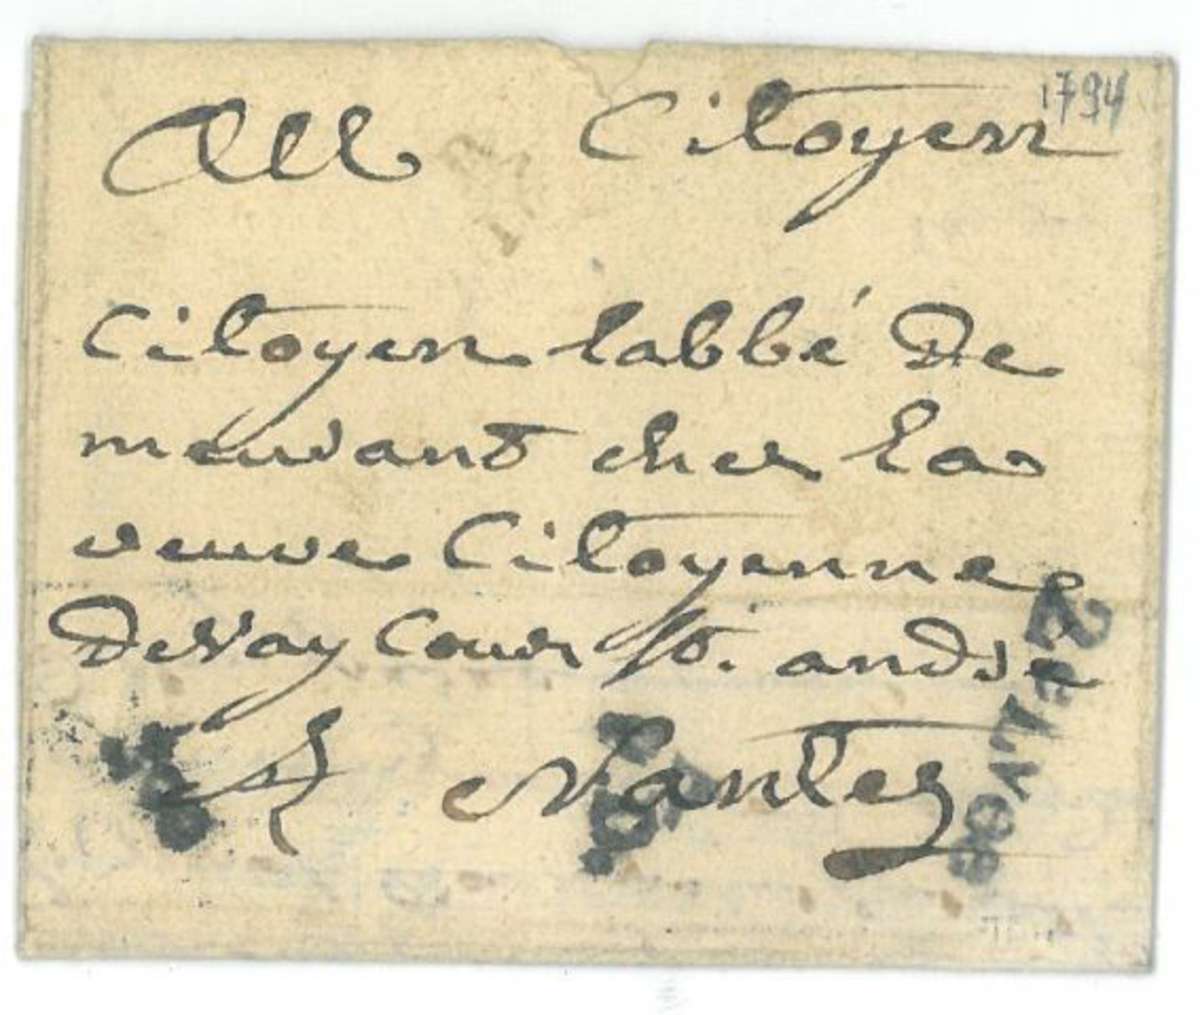 1794
Au Citoyen
Citoyen labbé De
meurant chez la
veuve Citoyenne
DeVay Cour St. andré
A Nantes